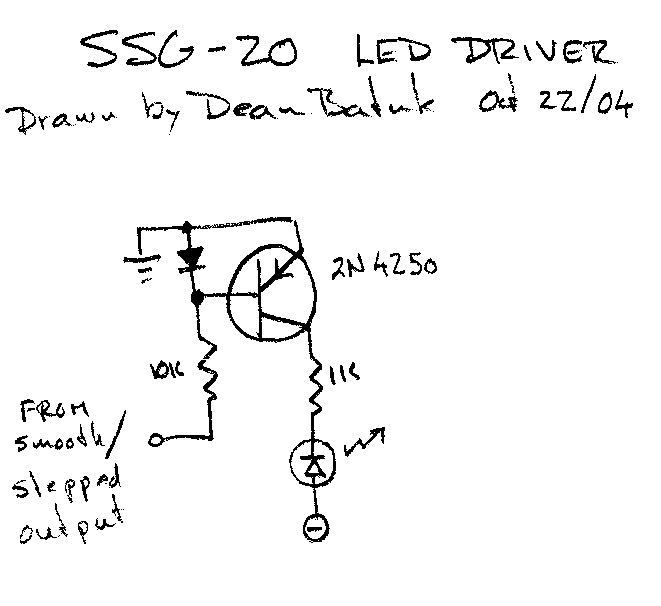 SSG-20 LED DRIVER
Drawn by Dean Batuk Oct 22/04
2N4250
10K
1K
FROM
smooth/
stepped
output
−